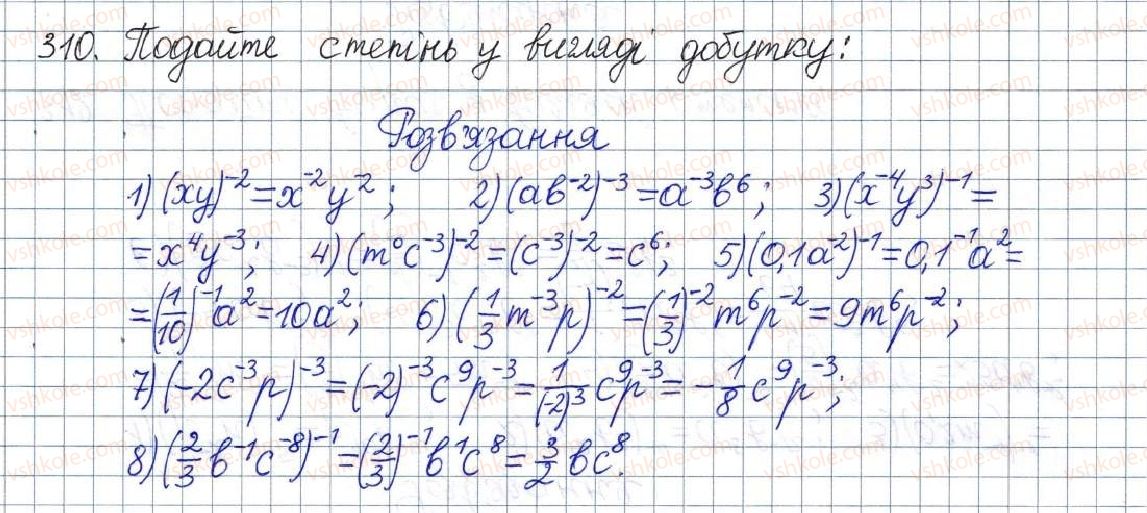 310. Подайте степінь у вигляді добутку:
Розв'язання
1) (xy)⁻² = x⁻²y⁻²; 2) (ab⁻²)⁻³ = a⁻³b⁶; 3) (x⁻⁴y³)⁻¹ =
= x⁴y⁻³; 4) (m⁰c⁻³)⁻² = (c⁻³)⁻² = c⁶; 5) (0,1a⁻²)⁻¹ = 0,1⁻¹a² =
= (1/10)⁻¹a² = 10a²; 6) (1/3 m⁻³p)⁻² = (1/3)⁻² m⁶p⁻² = 9m⁶p⁻²;
7) (-2c⁻³p)⁻³ = (-2)⁻³c⁹p⁻³ = 1/(-2)³ c⁹p⁻³ = -1/8 c⁹p⁻³;
8) (2/3 b⁻¹c⁻⁸)⁻¹ = (2/3)⁻¹b¹c⁸ = 3/2 bc⁸.